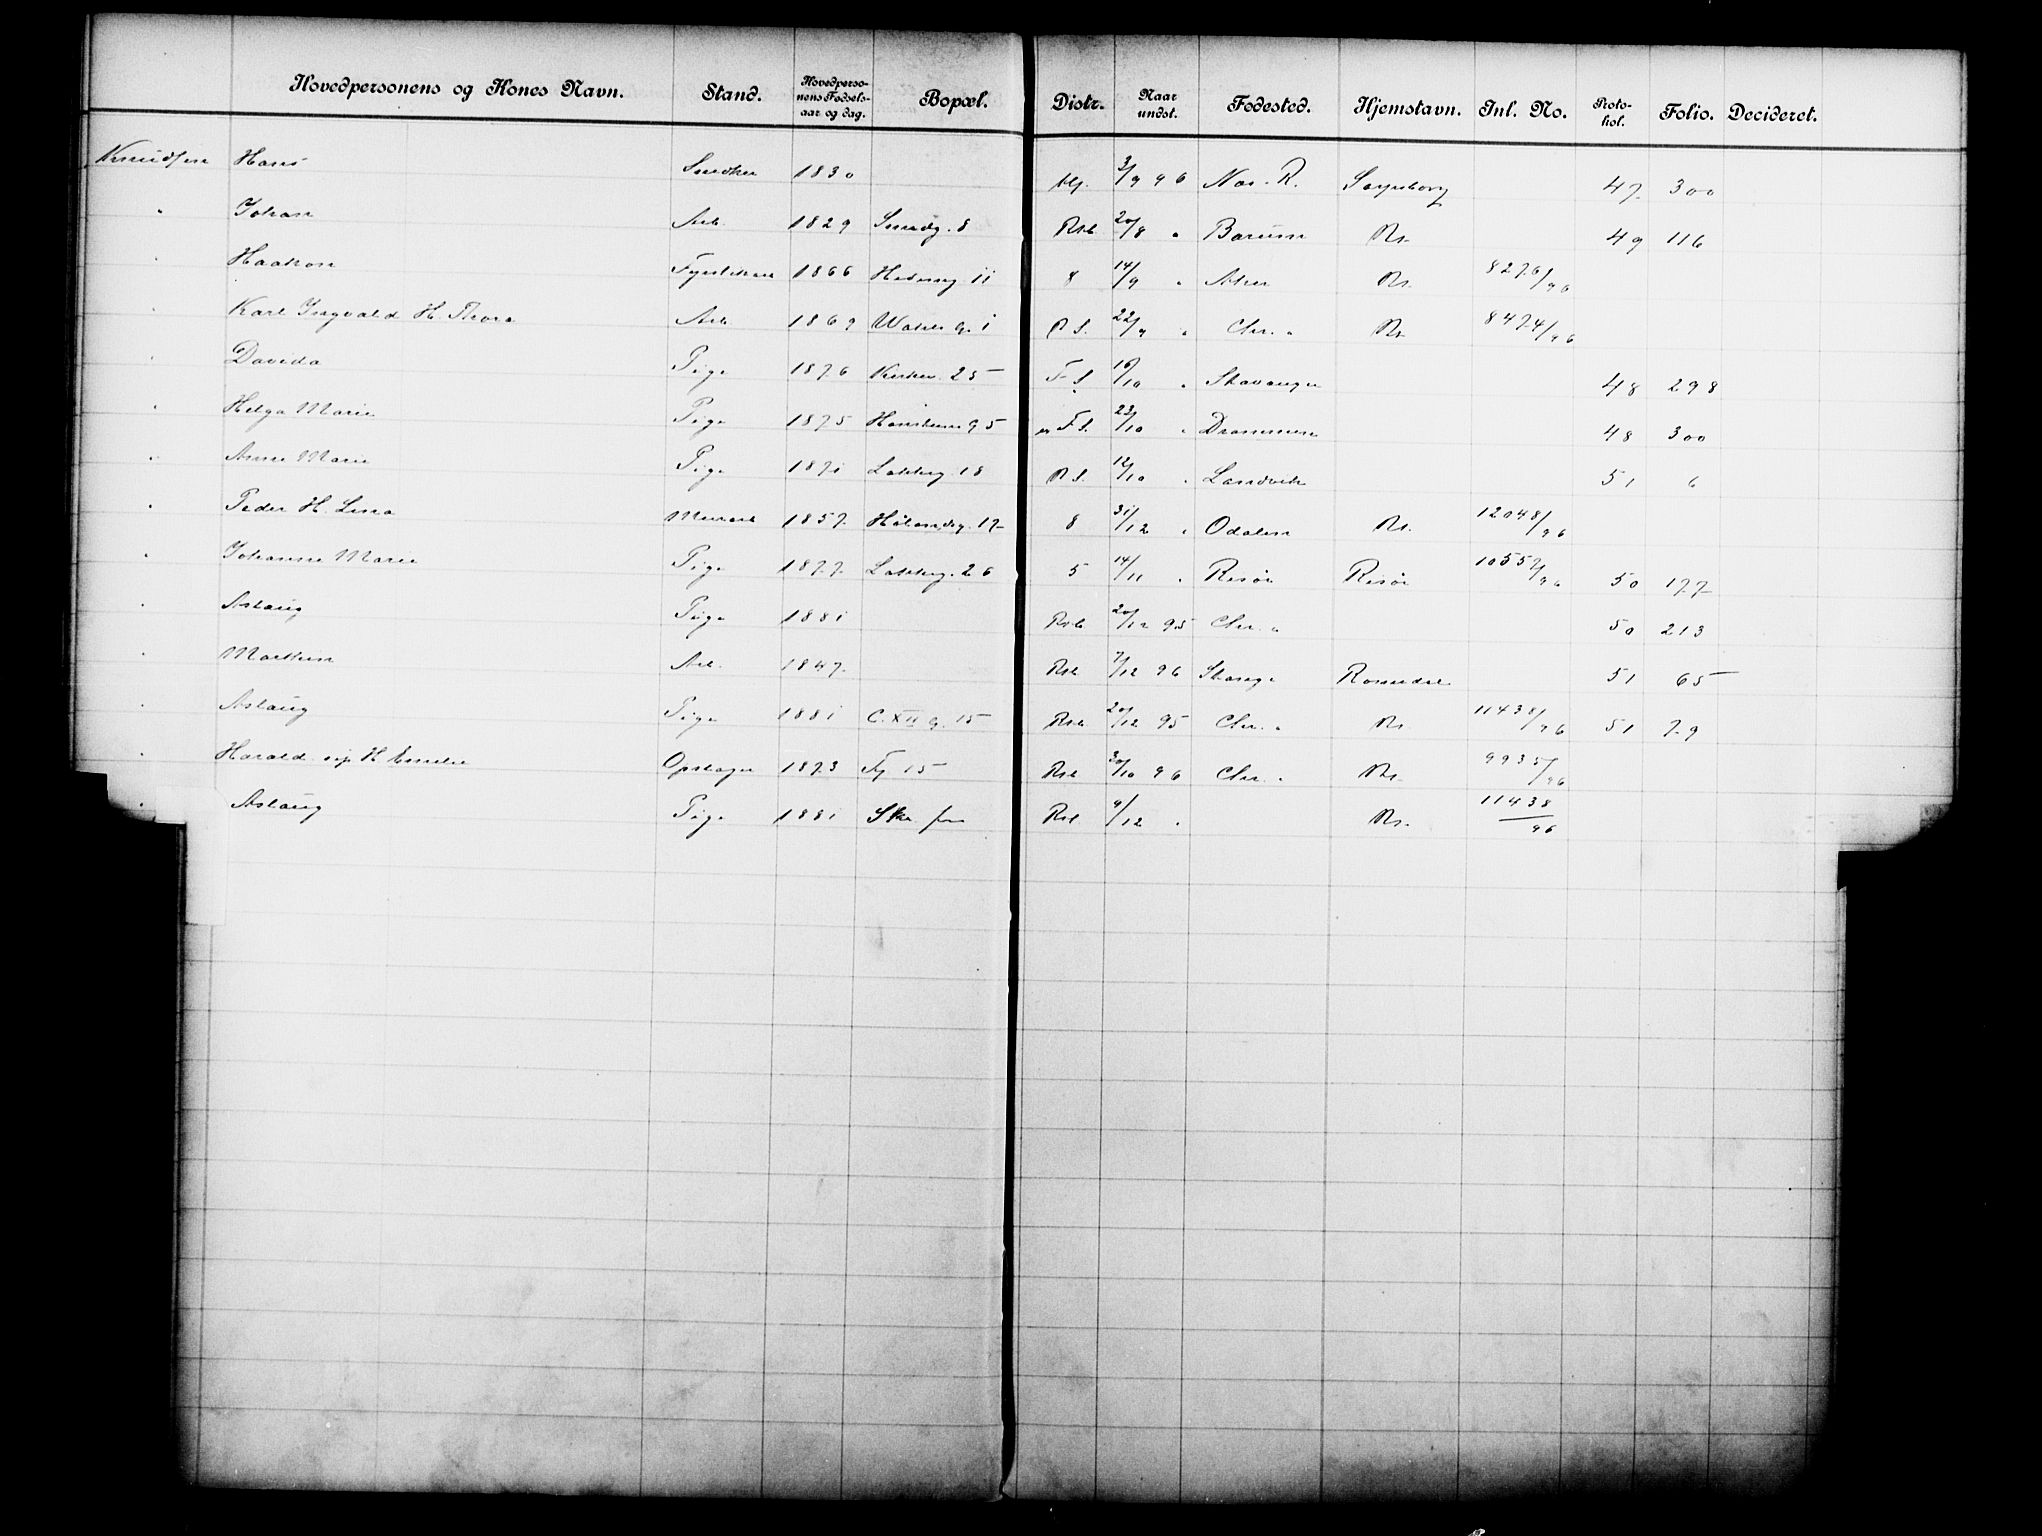 Hovedpersonens og Kones Navn. Stand. Hovedpersonens Fødselsaar og dag. Bopæl. Distr. Naar undst. Fødested. Hjemstavn. Inl. No. Protokol. Folio. Decideret.
Knudsen Hans Snedker 1830 3/9 96 Nor. R. Sarpsborg 47 300
" Johan Arb. 1829 Smedg. 8 Rst. 20/8 " Bærum Kr. 49 116
" Haakon 1866 11 8 14/9 " Aker Kr. 8276/96
" Karl Ingvald H. Thora Arb. 1869 1 P S. 22/9 " Chr.a Kr. 8474/96
" Davida Pige 1876 Kirkev. 25 F S. 16/10 " Stavanger 48 298
" Helga Marie Pige 1875 95 F S. 23/10 " Drammen 48 300
" Anne Marie Pige 1871 Lakkeg. 18 P S. 12/10 " Landvik 51 6
" Peder H. Lina Murarb 1857 Hølandsg. 17 8 31/12 " Odalen Kr. 12048/96
" Johanne Marie Pige 1877 Lakkeg. 26 5 14/11 " Risør Risør 10557/96 50 177
" Aslaug Pige 1881 Rst. 20/12 95 Chr.a 50 213
" Marthin Arb. 1847 Rst. 7/12 96 Stange Romedal 51 65
" Aslaug Pige 1881 C. XII G. 15 Rst. 20/12 95 Chr.a Kr. 11438/96 51 79
" Harald sep. H Emilie Opstager 1873 15 Rst 30/10 96 Chr.a Kr. 9935/96
" Aslaug Pige 1881 Rst. 9/12 " Kr. 11438/96